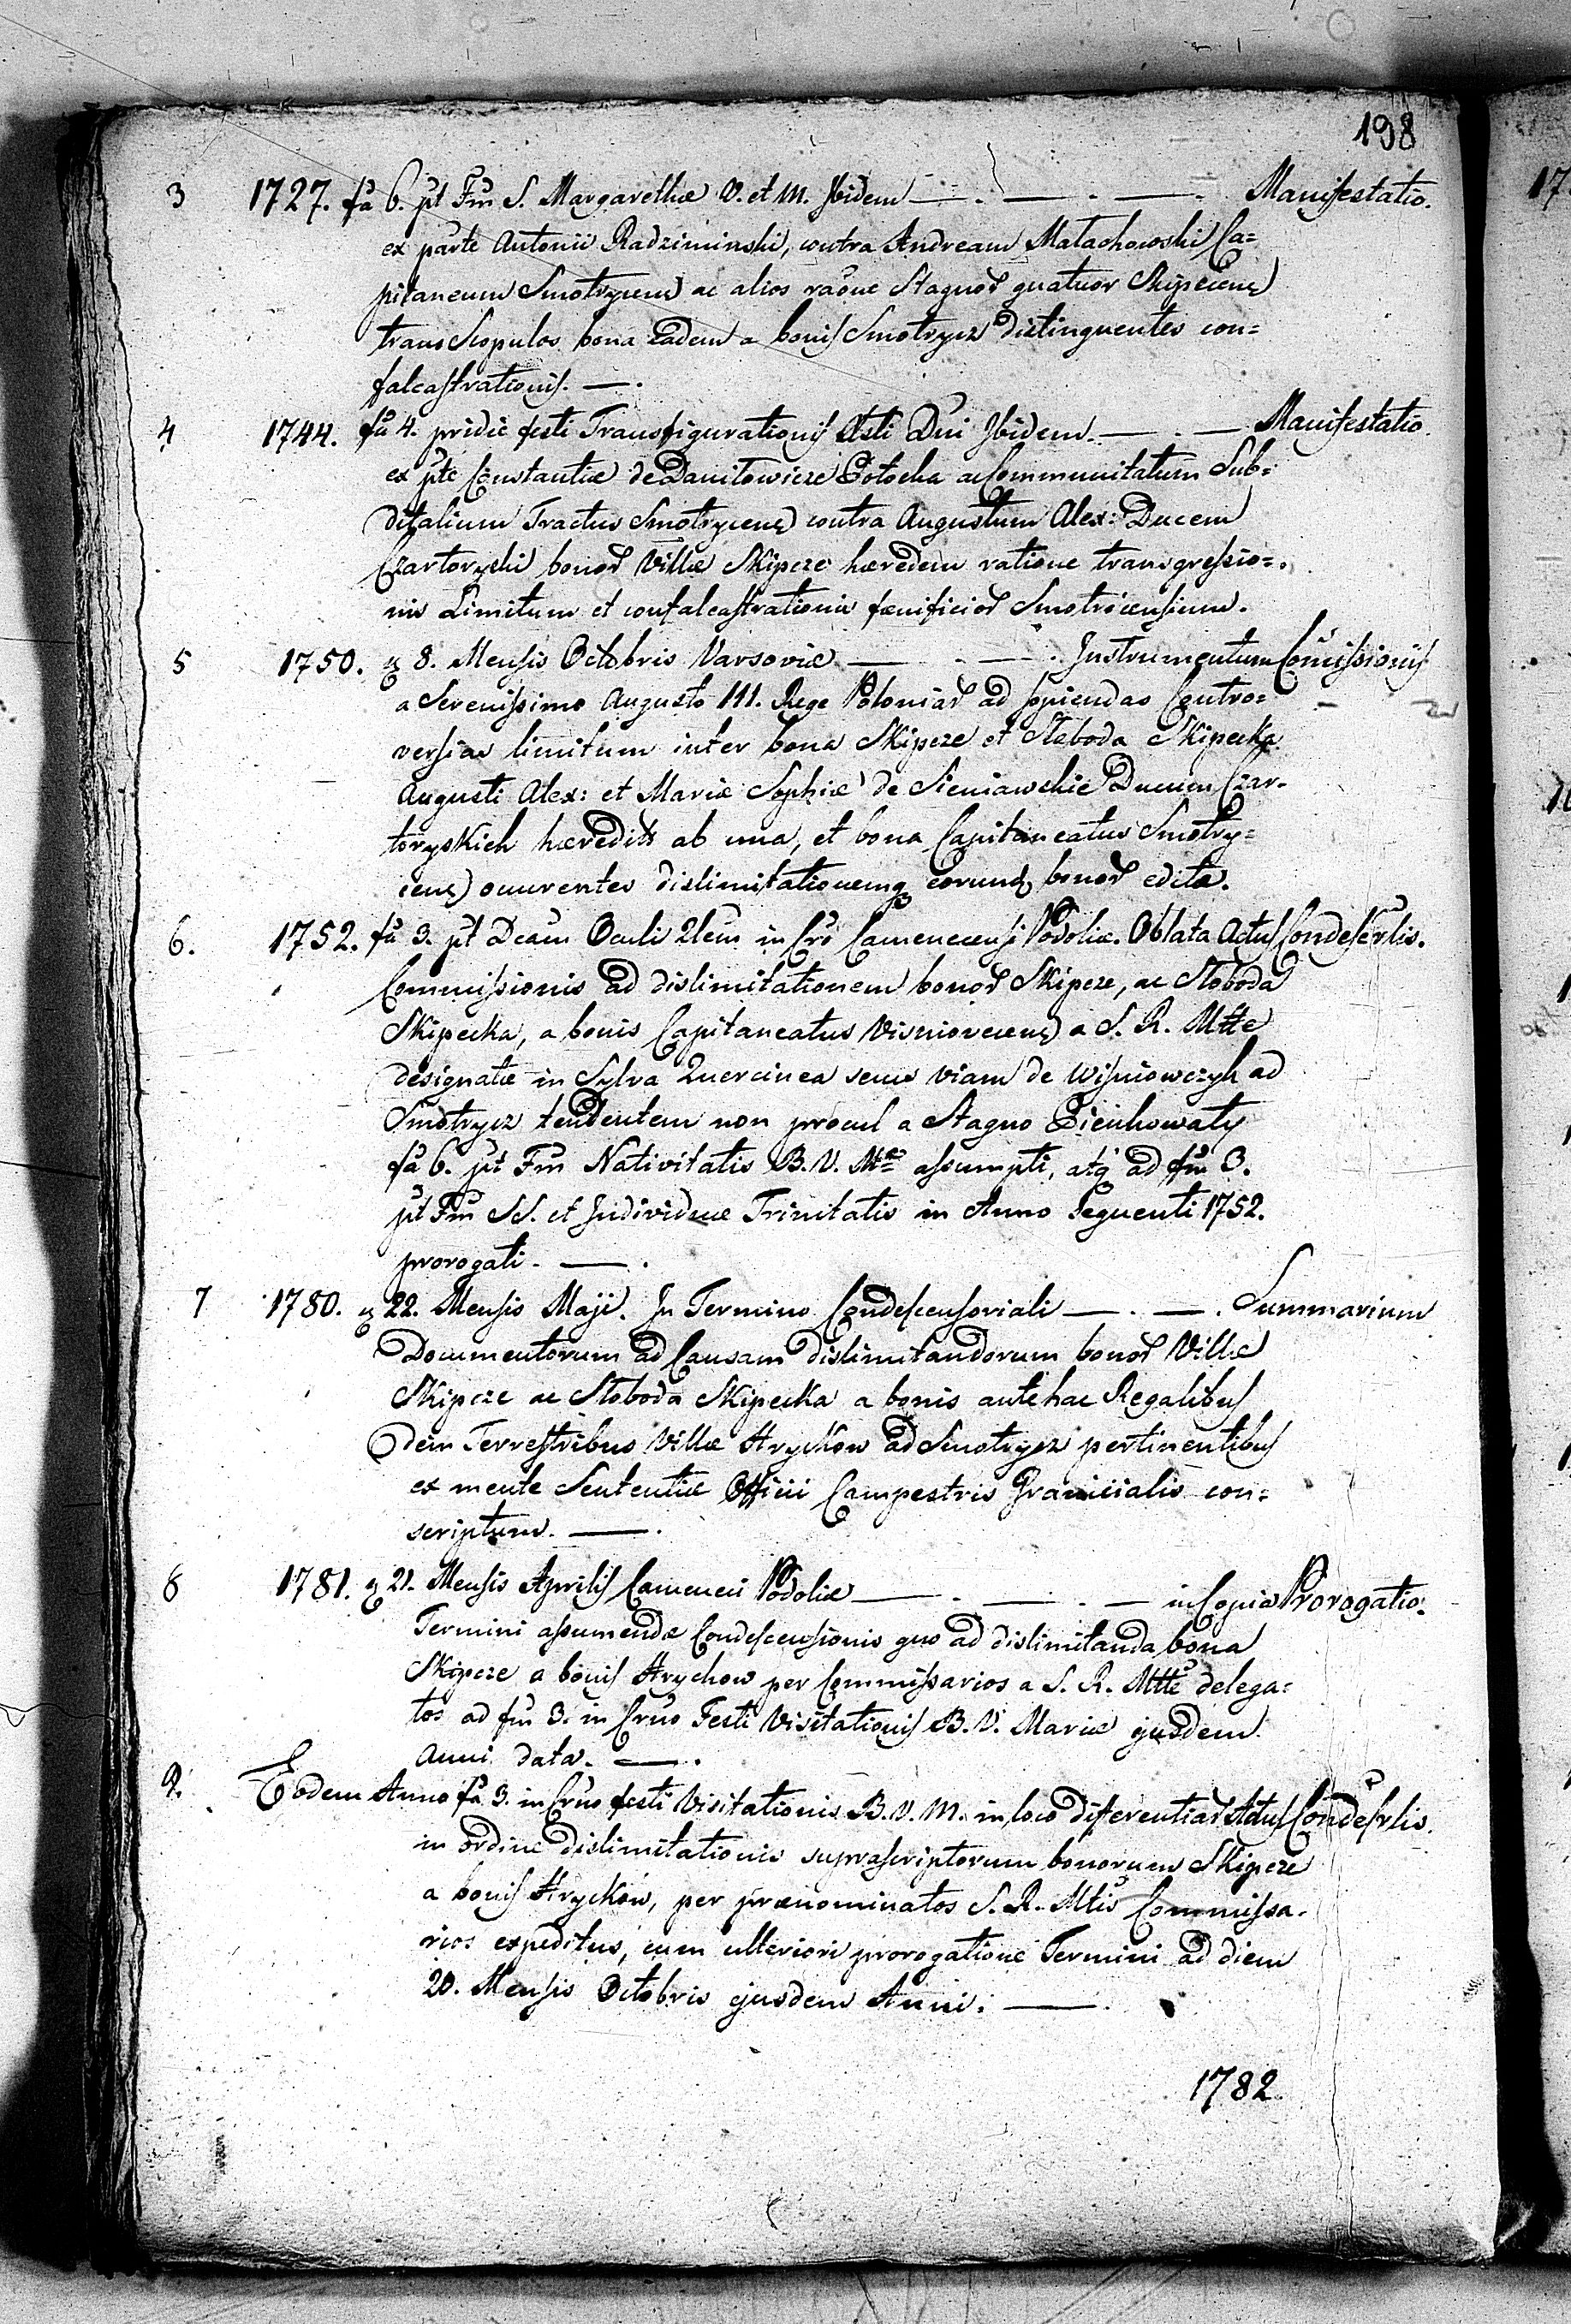 198
3 1727. fa 6. pt Fm S. Margarethæ V. et M. Ibidem —.—.—. Manifestatio.
ex parte Antonii Radziminski, contra Andream Małachowski Ca=
pitaneum Smotrycens) ac alios raõne Stagnor quatuor Skipecens)
trans Scopulos bona eadem a bonis Smotrycz distinguentes con=
falcastrationis. —.
4 1744. fa 4. pridie festi Transfigurationis Xsti Dni Ibidem. —.— Manifestatio.
ex pte Constantiæ de Daniłowicze Potocka ac Communitatum Sub=
ditalium Tractus Smotrycens) contra Augustum Alex: Ducem
Czartoryski bonor Villæ Skipcze hæredem ratione transgressio=
nis Limitum et confalcastrationis fænificior Smotricensium.
5 1750. 8. Mensis Octobris Varsoviæ —.—. Instrumentum Comissionis
a Serenissimo Augusto III. Rege Poloniar ad sopiendas Contro=
versias limitum inter bona Skipcze et Słoboda Skipecka
Augusti Alex: et Mariæ Sophiæ de Sieniawskie Ducum Czar=
toryskich hæredits ab una, et bona Capitaneatus Smotry=
cens) occurrentes dislimitationemq eorund bonor edita.
6. 1752. fa 3. pt Dcam Oculi 2lem in Cro Camenecensi Podoliæ. Oblata Actus Condescrlis.
Commissionis ad dislimitationem bonor Skipcze, ac Słoboda
Skipecka, a bonis Capitaneatus Visniovecens) a S. R. Mtte
designatæ in Sylva Quercinea secus viam de Wisniowczyk ad
Smotrycz tendentem non procul a Stagno Pienkowaty
fa 6. pt Fm Nativitatis B. V. Mæ assumpti, atq ad fm 3.
pt Fm SS. et Individuæ Trinitatis in Anno Sequenti 1752.
prorogati. —.
7 1780. 22. Mensis Maji. In Termino Condescensoriali —.—. Summarium
Documentorum ad Causam dislimitandorum bonor Villæ
Skipcze ac Słoboda Skipecka a bonis antehac Regalibus
dein Terrestribus Villæ Hryckow ad Smotrycz pertinentibus
ex mente Sententiæ Officii Campestris Granicialis con=
scriptum. —.
8 1781. 21. Mensis Aprilis Cameneci Podoliæ —.—.— in Copia Prorogatio.
Termini assumendæ Condescensionis quo ad dislimitanda bona
Skipcze a bonis Hrychow per Commissarios a S. R. Mtte delega=
tos ad fm 3. in Crno Festi Visitationis B. V. Mariæ ejusdem
Anni data. —.
9. Eodem Anno fa 3. in Crno festi Visitationis B. V. M. in loco differentiar Actus Condescrlis.
in ordine dislimitationis suprascriptorum bonorum Skipcze
a bonis Hryckow, per prænominatos S. R. Mtis Commissa=
rios expeditus, cum ulteriori prorogatione Termini ad diem
20. Mensis Octobris ejusdem Anni. —.
1782